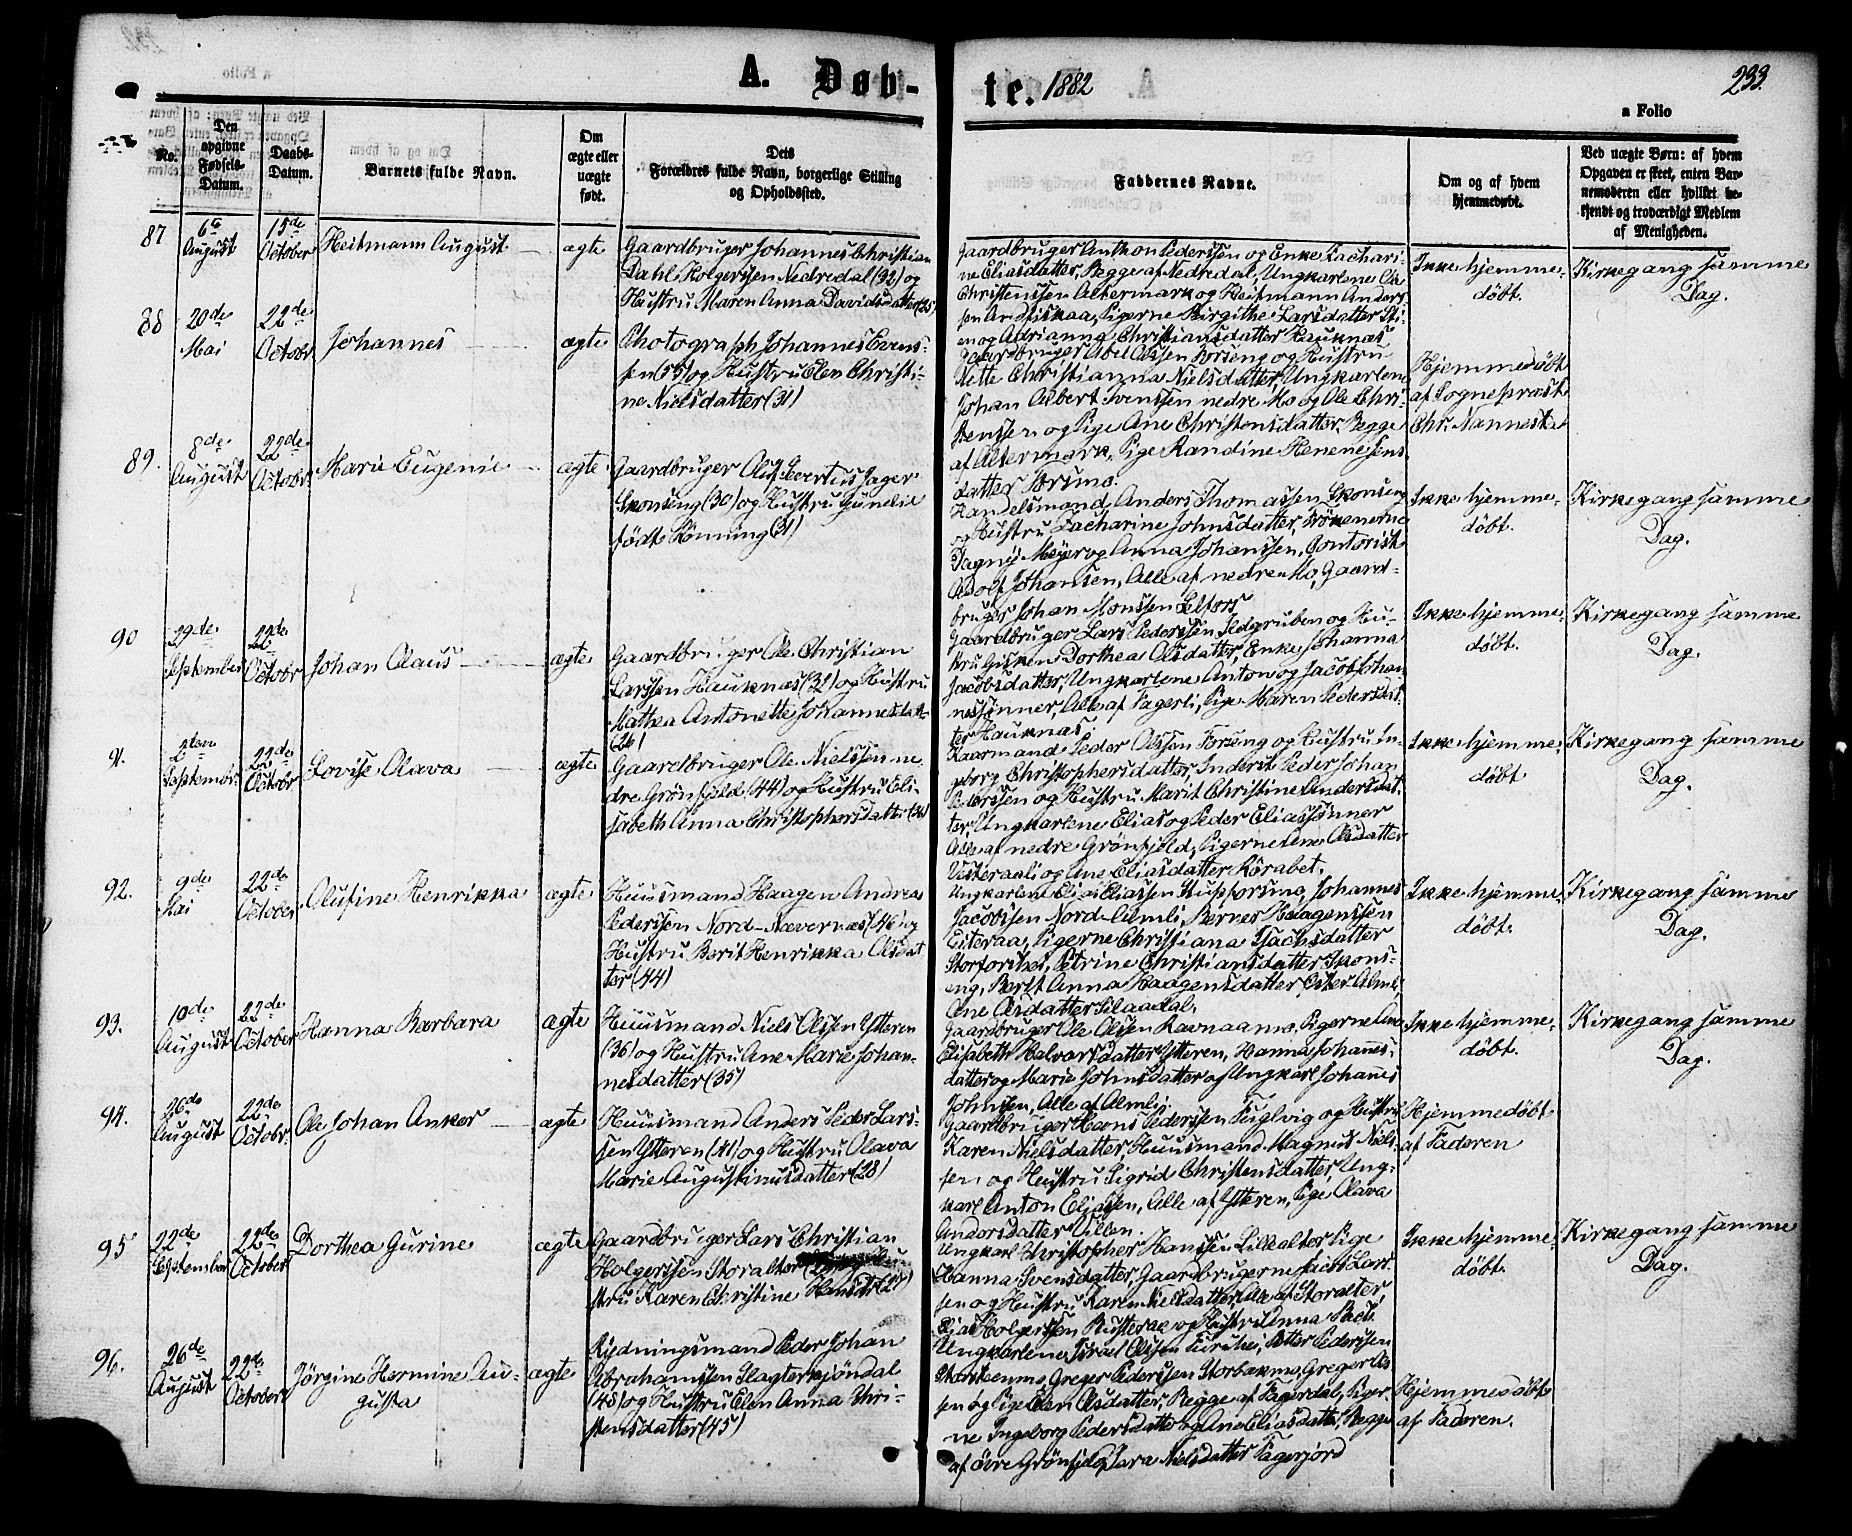 A. Døb-
te. 1882
233.
a Folio
No.
Den opgivne Fødsels-Datum.
Daabs-Datum.
Barnets fulde Navn.
Om ægte eller uægte født.
Dets Forældres fulde Navn, borgerlige Stilling og Opholdssted.
Faddernes Navne.
Om og af hvem hjemmedøbt.
Ved uægte Børn: af hvem Opgaven er skeet, enten Barnemoderen eller hvilket bekjendt og troværdigt Medlem af Menigheden.
87
6te August
15de October
Heitmann August
ægte
Gaardbruger Johannes Christian
Dahl Holgersen Nedredal (32) og
Hustru Maren Anna Davidsdatter (25)
Gaardbruger Anthon Pederssen og Enke Zachari-
ne Eliasdatter, Begge af Nedredal, Ungkarlene Ole
Christenssen Altermark og Heitmann Anders-
sen Andfiskaa, Pigerne Birgithe Larsdatter Sti-
en og Adrianna Christiansdatter Hauknæs
Ikke hjemme-
døbt.
Kirkegang samme
Dag.
88
20de Mai
22de Octobr
Johannes
ægte
Photograph Johannes Evens-
sen (55) og Hustru Elen Christi-
ne Nielsdatter (31)
Gaardbruger Abel Olssen Forseng og Hustru
Mette Christianna Nielsdatter, Ungkarlene
Johan Albert Svenssen nedre Mo og Ole Chri-
stenssen og Pige Ane Christensdatter, Begge
af Altermark, Pige Randine Henene Jens
datter Forsmo.
Hjemmedøbt
af Sogneprest
Chr. Nannestad
89.
8de August
22de Octobr
Marie Eugenie
ægte
Gaardbruger Oluf Severtus Jager
Skonseng (30) og Hustru Gunelie
født Rønning (31)
Handelsmand Anders Thomassen Skonseng
og Hustru Zacharine Johnsdatter, Frøkenerne
Dagny Meyer og Anna Johanssen, Contorist
Adolf Johansen, Alle af nedre Mo, Gaard-
bruger Johan Monssen Selfors
Ikke hjemme-
døbt.
Kirkegang samme
Dag.
90
29de September
22de Octobr
Johan Olaus
ægte
Gaardbruger Ole Christian
Larssen Hauknæs (32) og Hustru
Mathea Antonette Johannesdatt.
(26)
Gaardbruger Lars Pederssen Ildgruben og Hu-
stru Gisken Dorthea Olsdatter, Enke Johanna
Jacobsdatter, Ungkarlene Anton og Jacob Johan-
nessønner, Alle af Fagerli, Pige Maren Pedersdat-
ter Hauknæs
Ikke hjemme-
døbt.
Kirkegang samme
Dag.
91.
2den Septembr
22de Octobr
Lovise Olava
ægte
Gaardbruger Ole Nielssen ne-
dre Grønfjeld (44) og Hustru Eli-
sabeth Anna Christophersdatter (36)
Kaarmand Peder Olssen Forseng og Hustru In-
geborg Christophersdatter, Inderst Peder Johan
Pederssen og Hustru Marit Christine Andersdat-
ter, Ungkarlene Elias og Peder Eliassønner
Alle af nedre Grønfjeld, Pigerne Lene Olsdatter
Vesteraali og Ane Eliasdatter Rørabet.
Ikke hjemme-
døbt
Kirkegang samme
Dag.
92.
9de Mai
22de October
Olufine Henrikka
ægte
Huusmand Haagen Andreas
Pederssen Nord-Nævernæs (46) og
Hustru Berit Henrikka Olsdat
ter (44)
Ungkarlene Elias Eliassen Stupforsmo, Johannes
Jacobssen Nord-Almli, Berner Haagenssen
Eiteraa, Pigerne Christiana Isachsdatter
Storforshei, Petrine Christiansdatter Skons-
eng, Berit Anna Haagensdatter Øster Almli,
Ane Olsdatter Plaadal.
Ikke hjemme-
døbt.
Kirkegang samme
Dag.
93.
10de August
22de October
Hanna Barbara
ægte
Huusmand Niels Olssen Ytteren
(36) og Hustru Ane Marie Johan-
nesdatter (35)
Gaardbruger Ole Olsen Ravnaamo, Pigerne Ane
Elisabeth Halvorsdatter Ytteren, Hanna Johannes-
datter og Marie Johnsdatter af Ungkarl Johannes
Johnsen, Alle af Almli.
Ikke hjemme-
døbt.
Kirkegang samme
Dag.
94.
26de August
22de Octobr.
Ole Johan Anker
ægte
Huusmand Anders Peder Lars-
sen Ytteren (41) og Hustru Olava
Marie Augustinusdatter (28)
Gaardbruger Hans Pederssen Fuglvig og Hustru
Karen Nielsdatter, Huusmand Magnus Niels-
sen og Hustru Sigrid Christensdatter, Ung-
karl Anton Eliassen, Alle af Ytteren, Pige Olava
Andorsdatter Ullen.
Hjemmedøbt
af Faderen
95
22de September
22de October
Dorthea Gurine
ægte
Gaardbruger Lars Christian
Holgerssen Storalter
stru Karen Christine Hansdtr (27)
Ungkarl Christopher Hanssen Lillealter Pige
Hanna Svensdatter, Gaardbrugerne Jacob Lars-
sen og Hustru Karen Nielsdatter, Alle af Storalter,
Elias Holgerssen Rusteraa og Hustru Anna
Ikke hjemme-
døbt.
Kirkegang samme
Dag.
96.
26de August
22de October
Jørgine Hermine Au-
gusta
ægte
Rydningsmand Peder Johan
Abrahamssen Slagterkjøndal
(48) og Hustru Elen Anna Chri-
stensdatter (45)
Ungkarlene Israel Olssen Furuhei, Petter Pederssen
Greger Pederssen Storbakmo, Greger Ols
sen og Pige Elen Olsdatter, Begge af Fagerdal, Piger-
ne Ingeborg Pedersdatter og Ane Eliasdatter, Begge
af øvre Grønfjeld, Sara Nielsdatter Fagerjord
Hjemmedøbt
af Faderen.